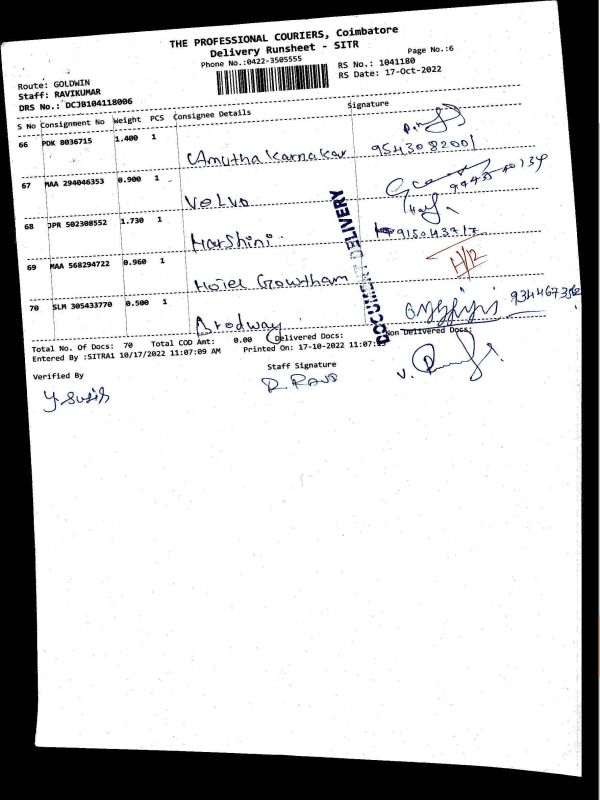 THE PROFESSIONAL COURIERS, Coimbatore
Delivery Runsheet - SITR
Phone No.:0422-3505555
Page No.:6
Route: GOLDWIN
RS No.: 1041180
Staff: RAVIKUMAR
RS Date: 17-Oct-2022
DRS No.: DCJB104118006
S No Consignment No Weight PCS Consignee Details Signature
66 PDK 8036715 1.400 1 Amutha Karnakar 9543082001
67 MAA 294046353 0.900 1 Volvo
68 JPR 502308552 1.730 1 Harshini
69 MAA 568294722 0.960 1 Hotel Gowtham H/12
70 SLM 305433770 0.500 1 Brodway
DOCUMENT DELIVERY
Total No. Of Docs: 70 Total COD Amt: 0.00 Delivered Docs: Non Delivered Docs:
Entered By :SITRA1 10/17/2022 11:07:09 AM Printed On: 17-10-2022 11:07:
Verified By Staff Signature